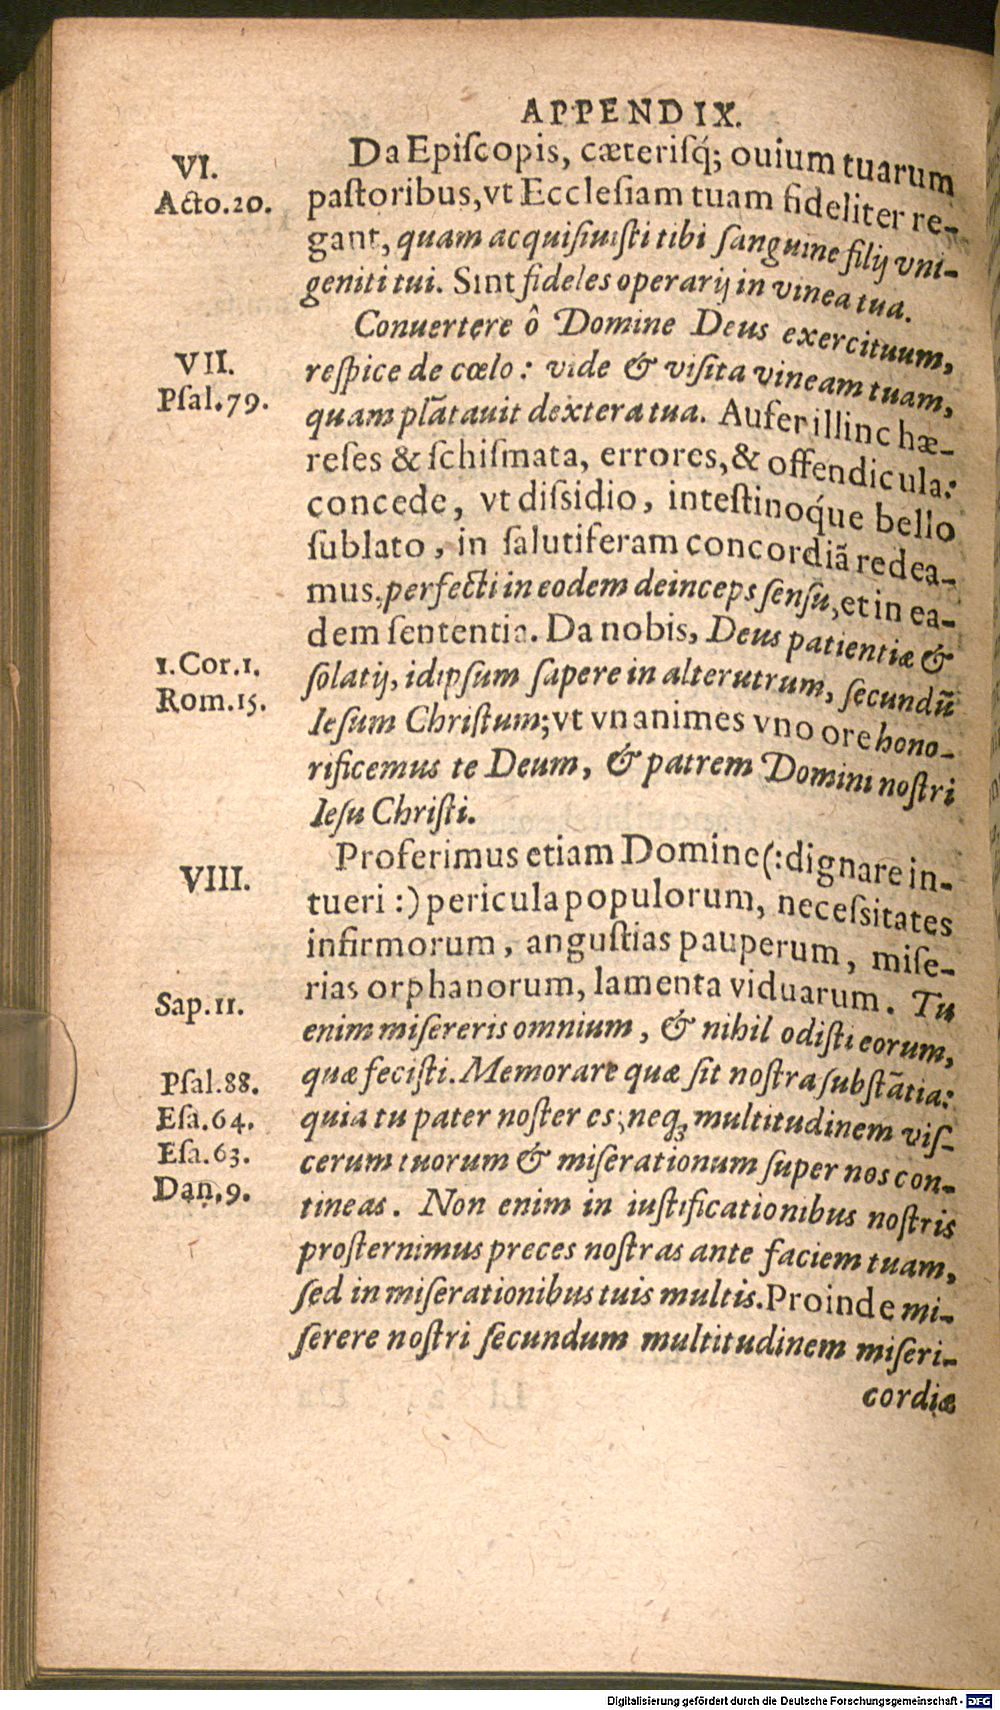 APPENDIX.
VI.
Acto.20.
Da Epiſcopis, cæteriſq́; ouium tuarum
paſtoribus, vt Eccleſiam tuam fideliter re-
gant, quam acquiſiuiſti tibi ſanguine filij vni-
geniti tui. Sint fideles operarij in vinea tua.
VII.
Pſal.79.
Conuertere ô Domine Deus exercituum,
reſpice de cœlo: vide & viſita vineam tuam,
quam plãtauit dextera tua. Aufer illinc hæ-
reſes & ſchiſmata, errores, & offendicula:
concede, vt diſsidio, inteſtinoq́ue bello
ſublato, in ſalutiferam concordiã redea-
mus, perfecti in eodem deinceps ſenſu, et in ea-
dem ſententia. Da nobis, Deus patientiæ &
1.Cor.1.
Rom.15.
ſolatij, idipſum ſapere in alterutrum, ſecundũ
Ieſum Chriſtum; vt vnanimes vno ore hono-
rificemus te Deum, & patrem Domini noſtri
Ieſu Chriſti.
VIII.
Proferimus etiam Domine (: dignare in-
tueri :) pericula populorum, neceſsitates
infirmorum, anguſtias pauperum, miſe-
rias orphanorum, lamenta viduarum. Tu
Sap.11.
enim miſereris omnium, & nihil odiſti eorum,
quæ feciſti. Memorare quæ ſit noſtra ſubſtãtia:
Pſal.88.
Eſa.64.
Eſa.63.
Dan.9.
quia tu pater noſter es; neqꝫ multitudinem viſ-
cerum tuorum & miſerationum ſuper nos con-
tineas. Non enim in iuſtificationibus noſtris
proſternimus preces noſtras ante faciem tuam,
ſed in miſerationibus tuis multis. Proinde mi-
ſerere noſtri ſecundum multitudinem miſeri-
cordiæ
Digitalisierung gefördert durch die Deutsche Forschungsgemeinschaft - DFG